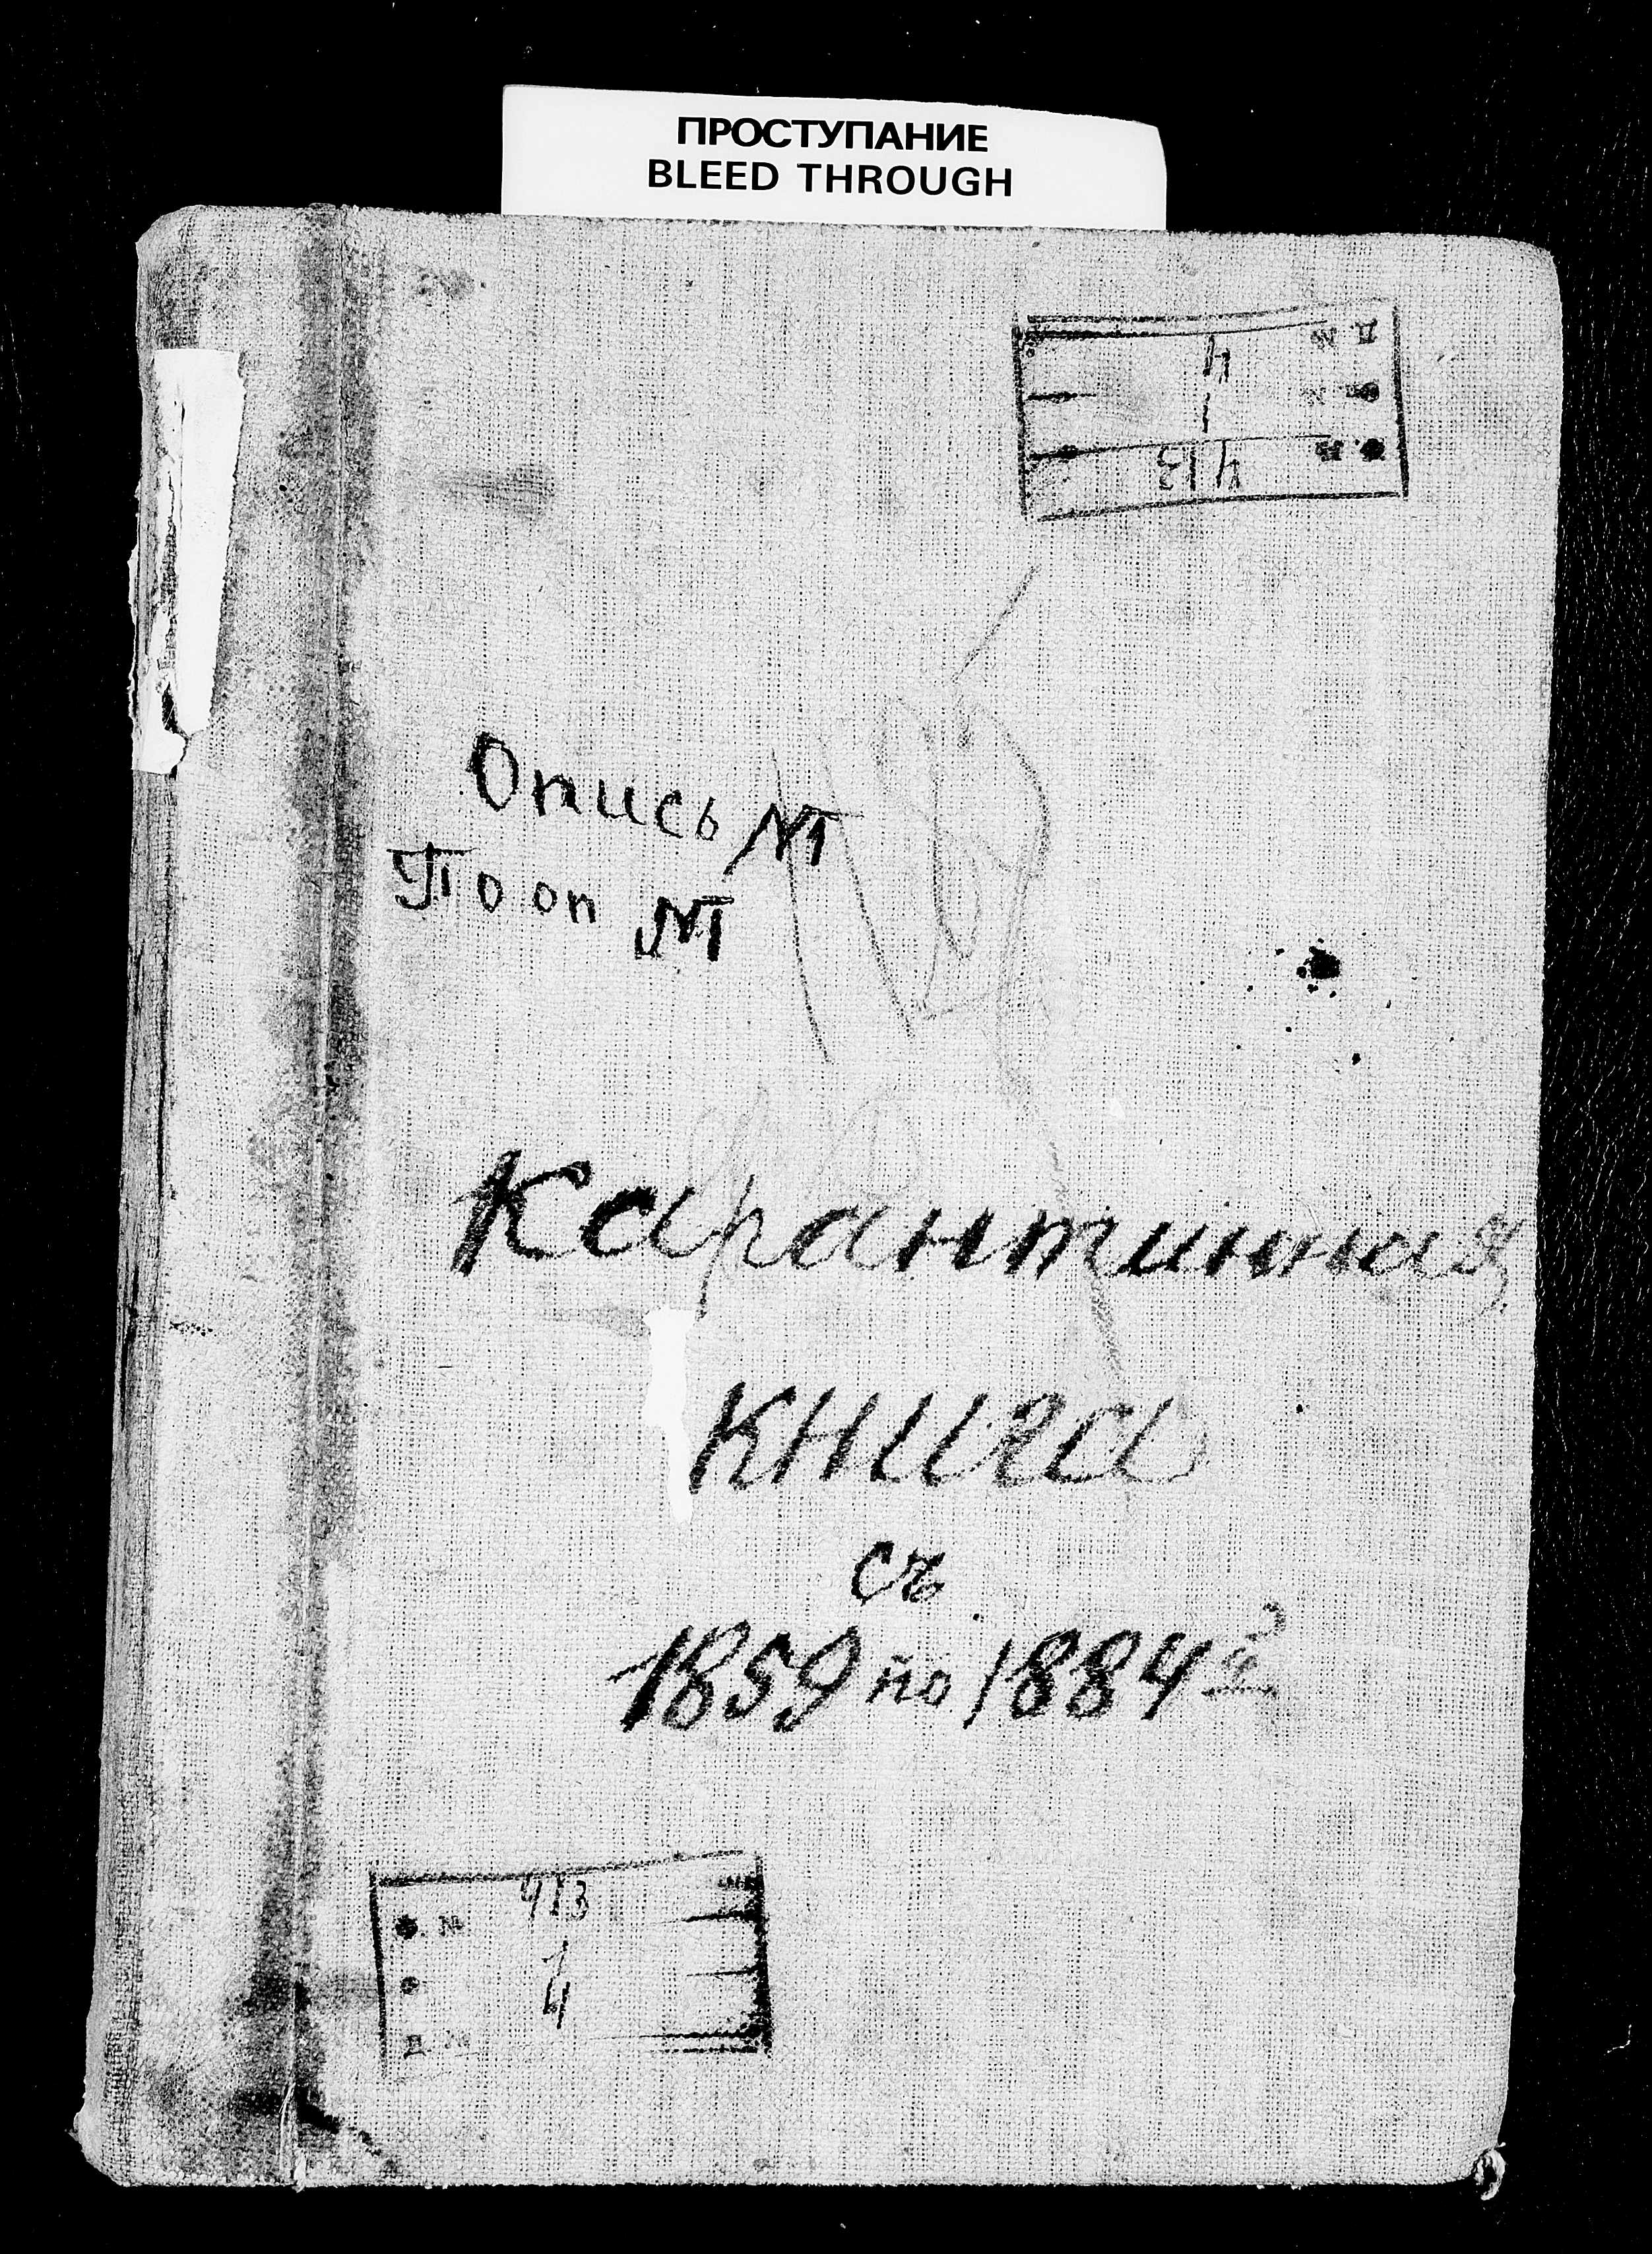 ПРОСТУПАНИЕ
BLEED THROUGH
Д №
4
№
1
Ф. №
413
Опись №1
По оп №1
Карантинная
книга
съ
1859 по 1884 г
Ф. №
413
1
Д. №
4